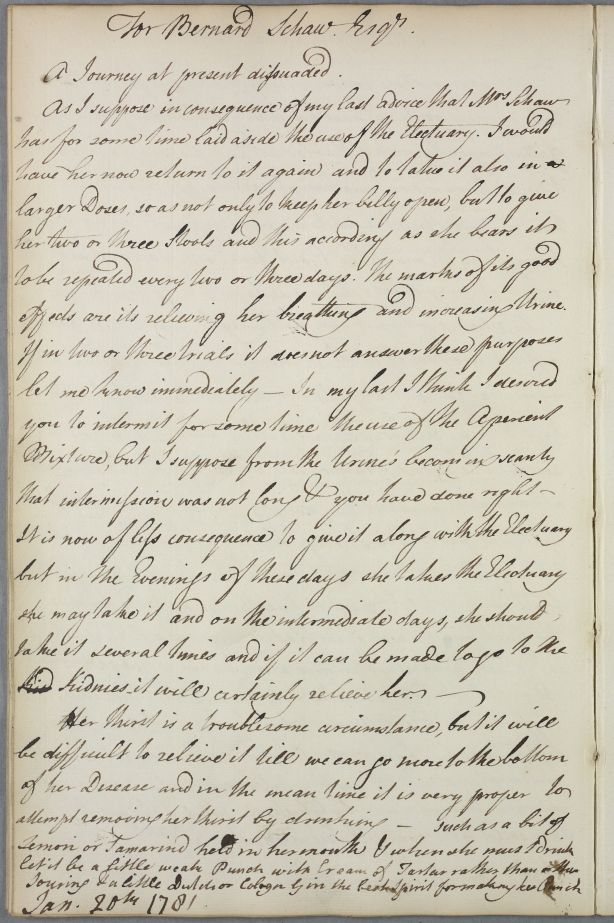 For Bernard Schaw. Esqr.
A Journey at present dissuaded.
As I suppose in consequence of my last advice that Mrs Schaw
has for some time laid aside the use of the Electuary. I would
have her now return to it again and to take it also in
larger Doses, so as not only to keep her belly open, but to give
her two or three Stools and this according as she bears it
to be repeated every two or three days. The marks of its good
effects are its relieving her breathing and increasing Urine.
If in two or three trials it does not answer these purposes
let me know immediately — In my last I think I desired
you to intermit for some time the use of the Aperient
Mixture, but I suppose from the Urine's becoming scanty
that intermission was not long & you have done right —
It is now of less consequence to give it along with the Electuary
but in the Evenings of these days she takes the Electuary
she may take it and on the intermediate days, she should
take it several times and if it can be made to go to the
Kid Kidnies it will certainly relieve her. —
Her thirst is a troublesome circumstance, but it will
be difficult to relieve it till we can go more to the bottom
of her Disease and in the mean time it is very proper to
attempt removing her thirst by drinking — Such as a bit of
Lemon or Tamarind held in her mouth & when she must Drink
let it be a little weak Punch with Cream of Tartar rather than other
Souring & a little Dutch or Cologn Gin the best Spirit for making her Punch
Jan. 20th 1781.